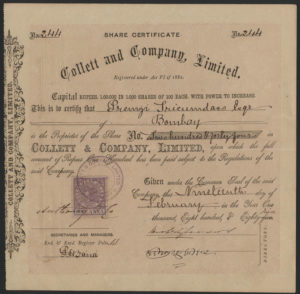 No. 244 SHARE CERTIFICATE No. 244
Collett and Company, Limited.
Registered under Act VI of 1882.
Capital RUPEES 100,000 IN 1,000 SHARES OF 100 EACH. WITH POWER TO INCREASE.
This is to certify that Premji Esqr
Bombay
is the Proprietor of the Share No. Two hundred & forty four in
COLLETT & COMPANY, LIMITED, upon which the full
amount of Rupees One Hundred has been paid subject to the Regulations of the
said Company.
Given under the Common Seal of the said
Company the Nineteenth day of
February in the Year One
thousand, Eight hundred & Eighty five
SECRETARIES AND MANAGERS
Entd. & Exd. Register Folio
DIRECTORS.
COLLETT AND COMPANY, LIMITED.